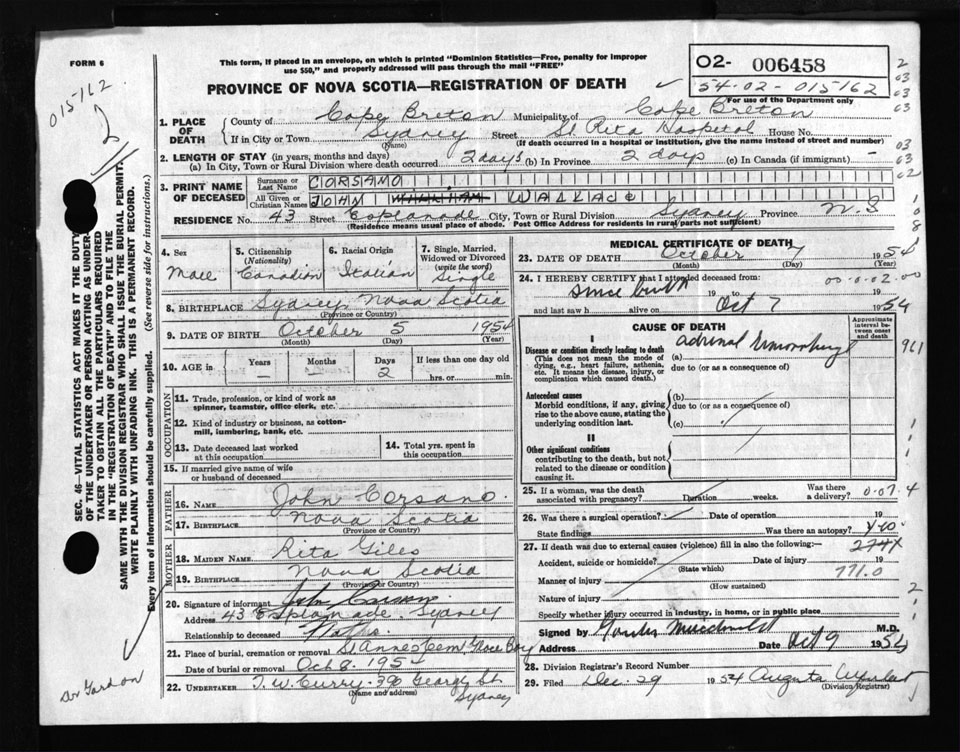 FORM 6
This form, if placed in an envelope, on which is printed "Dominion Statistics—Free, penalty for improper
use $50," and properly addressed will pass through the mail "FREE"
O2- 006458
54-02-015162
For use of the Department only
015162
PROVINCE OF NOVA SCOTIA—REGISTRATION OF DEATH
1. PLACE OF DEATH
County of Cape Breton Municipality of Cape Breton
If in City or Town Sydney Street St Rita Hospital House No.
(Name) (If death occurred in a hospital or institution, give the name instead of street and number)
2. LENGTH OF STAY (in years, months and days)
(a) In City, Town or Rural Division where death occurred 2 days (b) In Province 2 days (c) In Canada (if immigrant) -
3. PRINT NAME OF DECEASED
Surname or Last Name CORSANO
All Given or Christian Names JOHN WILLIAM WALLACE
RESIDENCE No. 43 Street Esplanade City, Town or Rural Division Sydney Province N.S
(Residence means usual place of abode. Post Office Address for residents in rural parts not sufficient)
4. Sex
Male
5. Citizenship
(Nationality)
Canadian
6. Racial Origin
Italian
7. Single, Married,
Widowed or Divorced
(write the word)
Single
8. BIRTHPLACE Sydney, Nova Scotia
(Province or Country)
9. DATE OF BIRTH October 5 1954
(Month) (Day) (Year)
10. AGE in
Years - Months - Days 2
If less than one day old
hrs. or min.
OCCUPATION
11. Trade, profession, or kind of work as
spinner, teamster, office clerk, etc.
12. Kind of industry or business, as cotton-
mill, lumbering, bank, etc.
13. Date deceased last worked
at this occupation
14. Total yrs. spent in
this occupation
15. If married give name of wife
or husband of deceased
FATHER
16. NAME John Corsano.
17. BIRTHPLACE Nova Scotia
(Province or Country)
MOTHER
18. MAIDEN NAME Rita Giles
19. BIRTHPLACE Nova Scotia
(Province or Country)
20. Signature of informant John Corsano
Address 43 Esplanade. Sydney
Relationship to deceased Father
21. Place of burial, cremation or removal St Annes Cem, Glace Bay
Date of burial or removal Oct 8. 1954
22. UNDERTAKER T. W. Curry. 390 George St.
(Name and address) Sydney
MEDICAL CERTIFICATE OF DEATH
23. DATE OF DEATH October 7 1954
(Month) (Day) (Year)
24. I HEREBY CERTIFY that I attended deceased from:
00.0.02.00
since birth 19 to Oct 7 1954
and last saw h alive on 19
CAUSE OF DEATH
Approximate interval between onset and death
I
Disease or condition directly leading to death
(This does not mean the mode of dying, e.g., heart failure, asthenia, etc. It means the disease, injury, or complication which caused death.)
(a) adrenal hemorrhage
due to (or as a consequence of)
Antecedent causes
Morbid conditions, if any, giving rise to the above cause, stating the underlying condition last.
(b)
due to (or as a consequence of)
(c)
II
Other significant conditions
contributing to the death, but not related to the disease or condition causing it.
25. If a woman, was the death
associated with pregnancy? Duration weeks. Was there a delivery? 0.07.4
26. Was there a surgical operation? Date of operation 19
State findings Was there an autopsy?
27. If death was due to external causes (violence) fill in also the following:- 274X
Accident, suicide or homicide? Date of injury 19
(State which) 771.0
Manner of injury
(How sustained)
Nature of injury
Specify whether injury occurred in industry, in home, or in public place
Signed by M.D.
Address Date Oct 9 1954
28. Division Registrar's Record Number
29. Filed Dec. 29 1954 Augusta
(Division Registrar)
SEC. 46—VITAL STATISTICS ACT MAKES IT THE DUTY
OF THE UNDERTAKER OR PERSON ACTING AS UNDER-
TAKER TO OBTAIN ALL THE PARTICULARS REQUIRED
IN THE "REGISTRATION OF DEATH" AND TO FILE THE
SAME WITH THE DIVISION REGISTRAR WHO SHALL ISSUE THE BURIAL PERMIT.
WRITE PLAINLY WITH UNFADING INK. THIS IS A PERMANENT RECORD.
Every item of information should be carefully supplied. (See reverse side for instructions.)